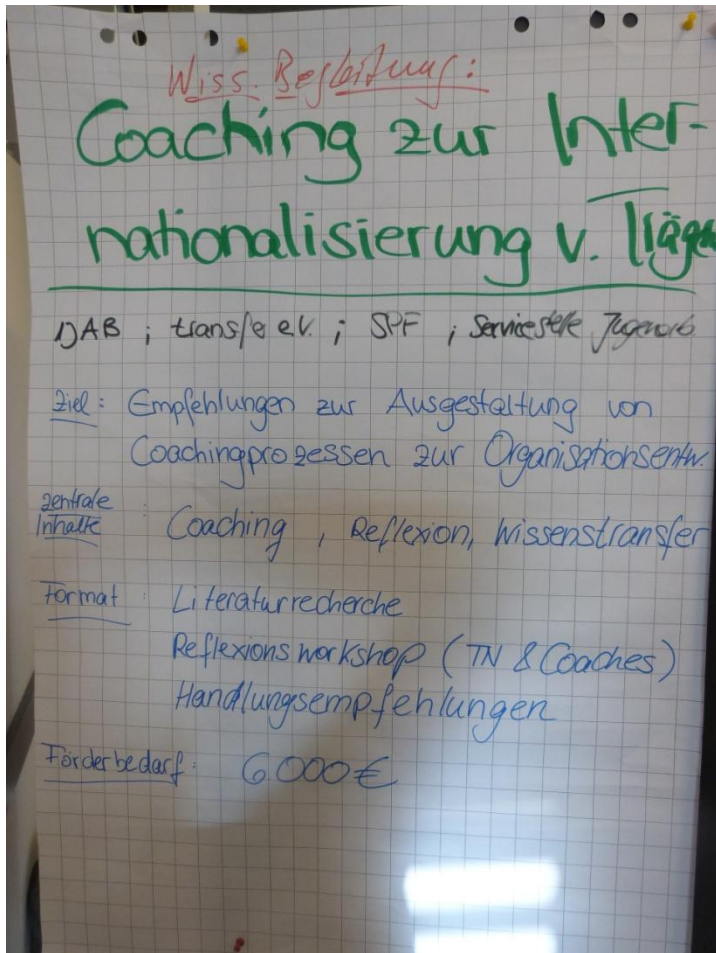 Wiss. Begleitung:
Coaching zur Inter-
nationalisierung v. Träge
; transfer e.V. ; SPF ; Servicestelle Jugendarb.
Ziel: Empfehlungen zur Ausgestaltung von
Coachingprozessen zur Organisationsentw.
zentrale
Inhalte : Coaching, Reflexion, Wissenstransfer
Format : Literaturrecherche
Reflexionsworkshop (TN & Coaches)
Handlungsempfehlungen
Förderbedarf: 6.000€